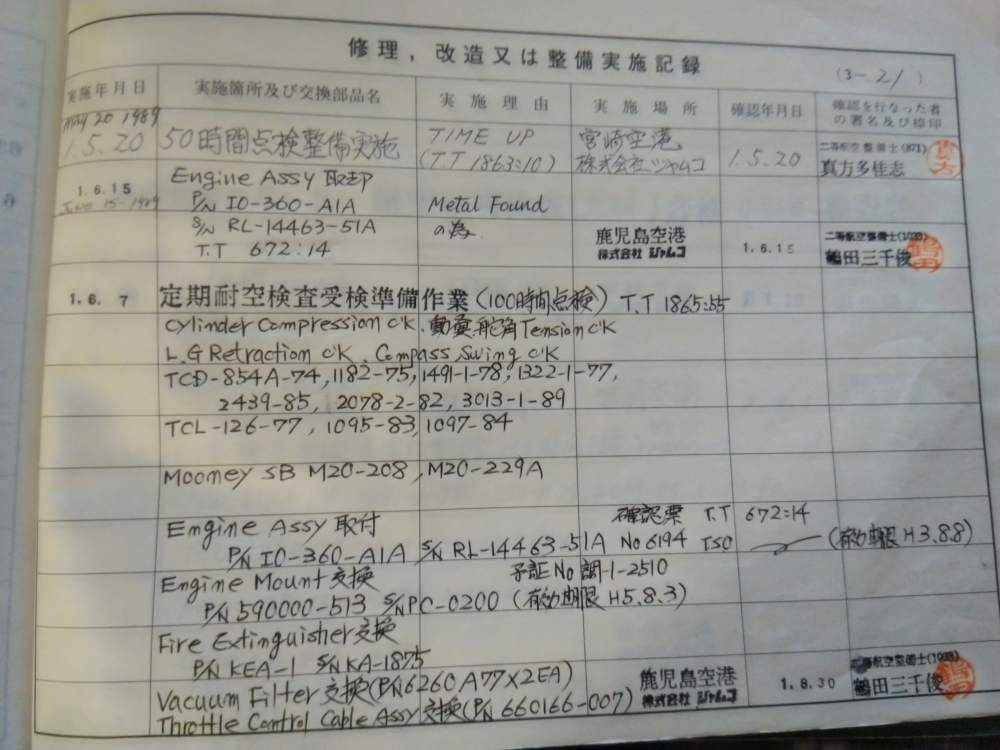 修理，改造又は整備実施記録
(3-21)
実施年月日 実施箇所及び交換部品名 実施理由 実施場所 確認年月日 確認を行なった者の署名及び捺印
MAY 20 1989
1.5.20 50時間点検整備実施 TIME UP 宮崎空港 1.5.20 二等航空整備士(871)
(T.T 1863:10) 株式会社ジャムコ 真方多佳志
1.6.15 Engine Assy 取卸
June 15-1989 P/N IO-360-A1A Metal Found
S/N RL-14463-51A の為 鹿児島空港 1.6.15 二等航空整備士(1033)
T.T 672:14 株式会社 ジャムコ 鶴田三千俊
1.6.7 定期耐空検査受検準備作業(100時間点検) T.T 1865:55
Cylinder Compression c'k. 動翼舵角Tension c'k
L.G Retraction c'k. Compass Swing c'k
TCD-854A-74, 1182-75, 1491-1-78, 1322-1-77,
2439-85, 2078-2-82, 3013-1-89
TCL-126-77, 1095-83, 1097-84
Mooney SB M20-208, M20-229A
Engine Assy 取付 確認票 T.T 672:14
P/N IO-360-A1A S/N RL-14463-51A No 6194 TSO (有効期限 H3.8.8)
Engine Mount 交換 予証 No 調-1-2510
P/N 590000-513 S/N PC-0200 (有効期限 H5.8.3)
Fire Extinguisher 交換
P/N KEA-1 S/N KA-1875
Vacuum Filter 交換(P/N 6260A77X2EA) 鹿児島空港 1.8.30 二等航空整備士(1033)
Throttle Control Cable Assy 交換(P/N 660166-007) 株式会社 ジャムコ 鶴田三千俊